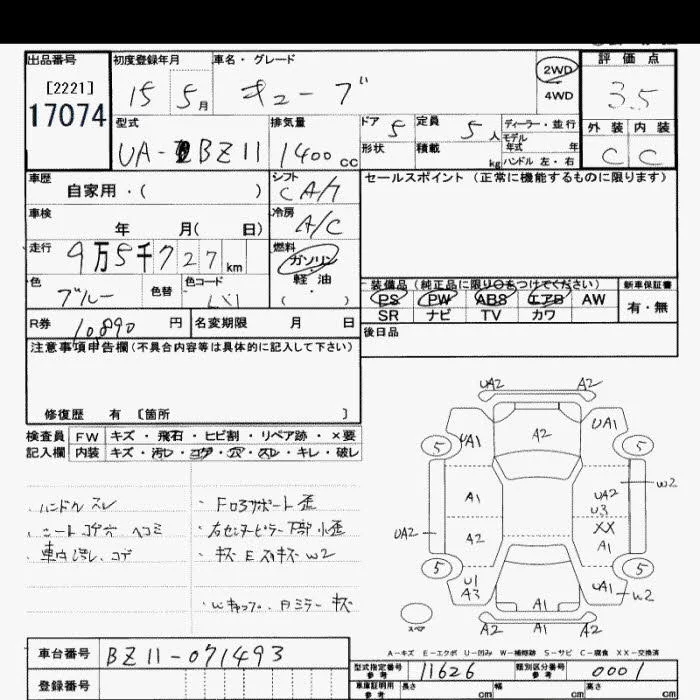 出品番号 初度登録年月 車名・グレード 2WD 評価点
[2221] 15 5月 キューブ 4WD 3.5
17074 型式 排気量 ドア 5 定員 5人 ディーラー・並行 外装 内装
モデル年式 年
UA- BZ11 1400cc 形状 積載 kg ハンドル 左・右 C C
車歴 シフト セールスポイント (正常に機能するものに限ります)
自家用・( ) C A/T
車検 冷房
年 月( 日) A/C
走行 9万5千727km 燃料
ガソリン
色 色替 色コード 軽油 装備品(純正品に限り○をつけてください) 新車保証書
ブルー ( ) PS PW ABS エアB AW 有・無
SR ナビ TV カワ
R券 10,890円 名変期限 月 日 後日品
注意事項申告欄(不具合内容等は具体的に記入して下さい)
修復歴 有 [箇所 ]
検査員 FW キズ・飛石・ヒビ割・リペア跡・×要
記入欄 内装 キズ・汚レ・コゲ・穴・スレ・キレ・破レ
・ハンドルスレ
・シートコゲ穴 ヘコミ
・車内汚レ、コゲ
・Fロアサポート歪
・右センターピラー下部小歪
・キズEスリキズW2
・Wキャップ、Rミラーキズ
UA2 A2
UA1 A2 UA1
5 5
A1 UA2 W2
U3
UA2 A2 XX
A1
5 5
U1 UA1 W2
A3 A1
スペア
A2 A1 A2
A-キズ E-エクボ U-凹み W-補修跡 S-サビ C-腐食 XX-交換済
車台番号 BZ11-071493
型式指定番号参考 11626 類別区分番号参考 0001
登録番号 車庫証明用参考 長さ cm 幅 cm 高さ cm